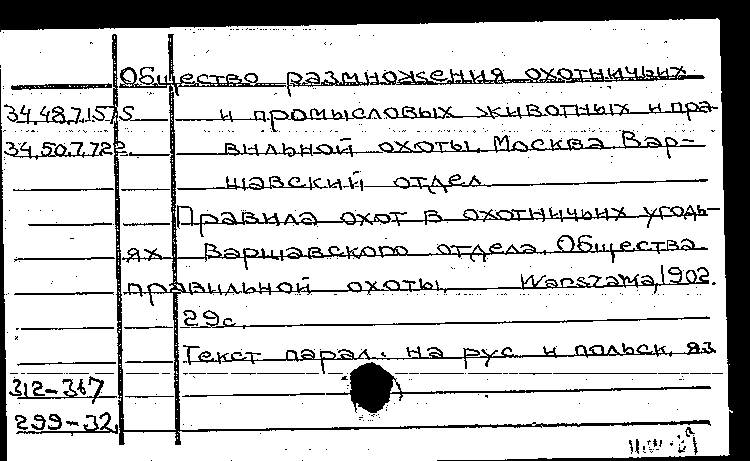 Общество размножения охотничьих
34.48.7.1575 и промысловых животных и пра-
34.50.7.722. вильной охоты. Москва. Вар-
шавский отдел
Правила охот в охотничьих угодь-
ях Варшавского отдела. Общества
правильной охоты. Warszawa, 1902.
29с.
Текст парал. на рус и польск. яз
312-367
299-32